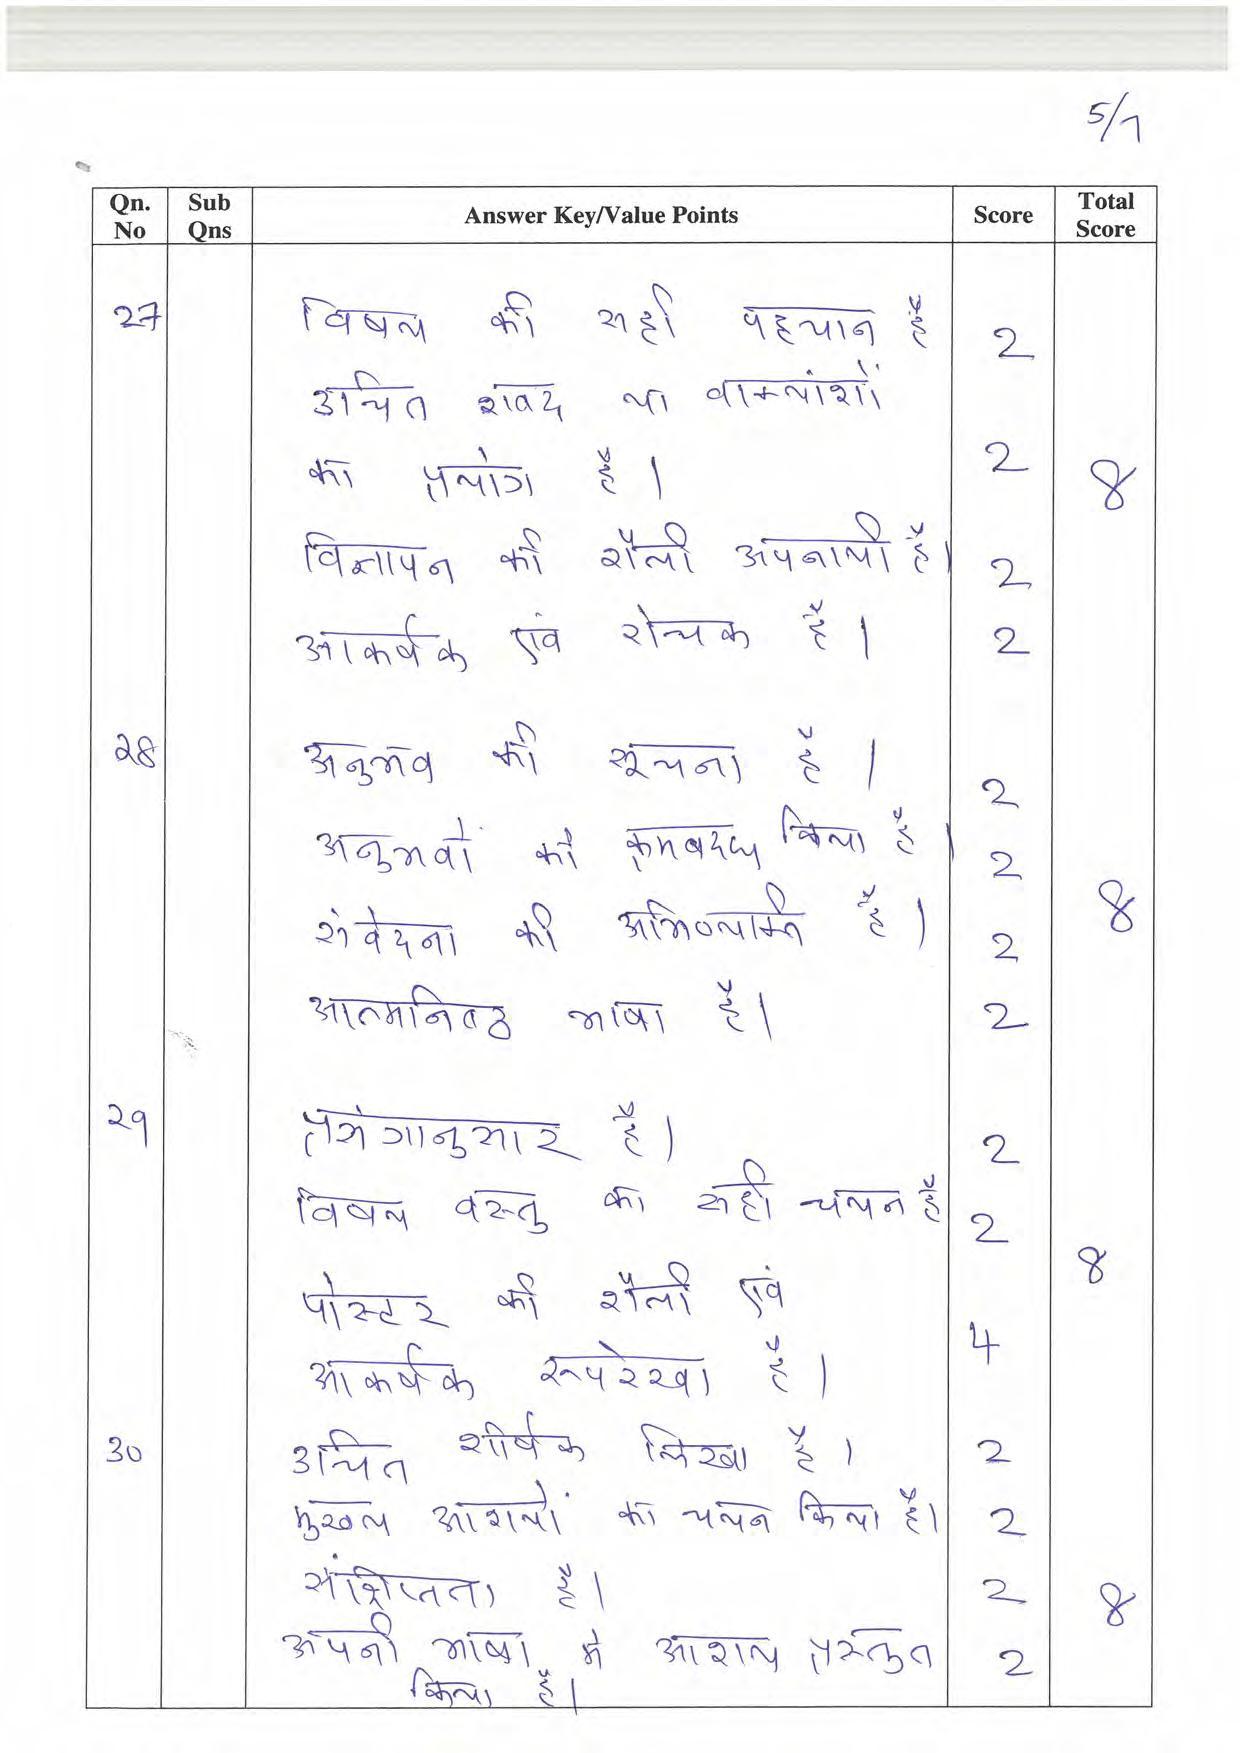 5/7
Qn. No Sub Qns Answer Key/Value Points Score Total Score
27 विषय की सही पहचान है 2
उचित शब्द या वाक्यांशों
का प्रयोग है। 2 8
विज्ञापन की शैली अपनायी है। 2
आकर्षक एवं रोचक है। 2
28 अनुभव की सूचना है। 2
अनुभवों को क्रमबद्ध किया है। 2
संवेदना की अभिव्यक्ति है। 2 8
आत्मनिष्ठ भाषा है। 2
29 प्रसंगानुसार है। 2
विषय वस्तु का सही चयन है 2
पोस्टर की शैली एवं 8
आकर्षक रूपरेखा है। 4
30 उचित शीर्षक लिखा है। 2
मुख्य आशयों का चयन किया है। 2
संक्षिप्तता है। 2 8
अपनी भाषा में आशय प्रस्तुत 2
किया है।